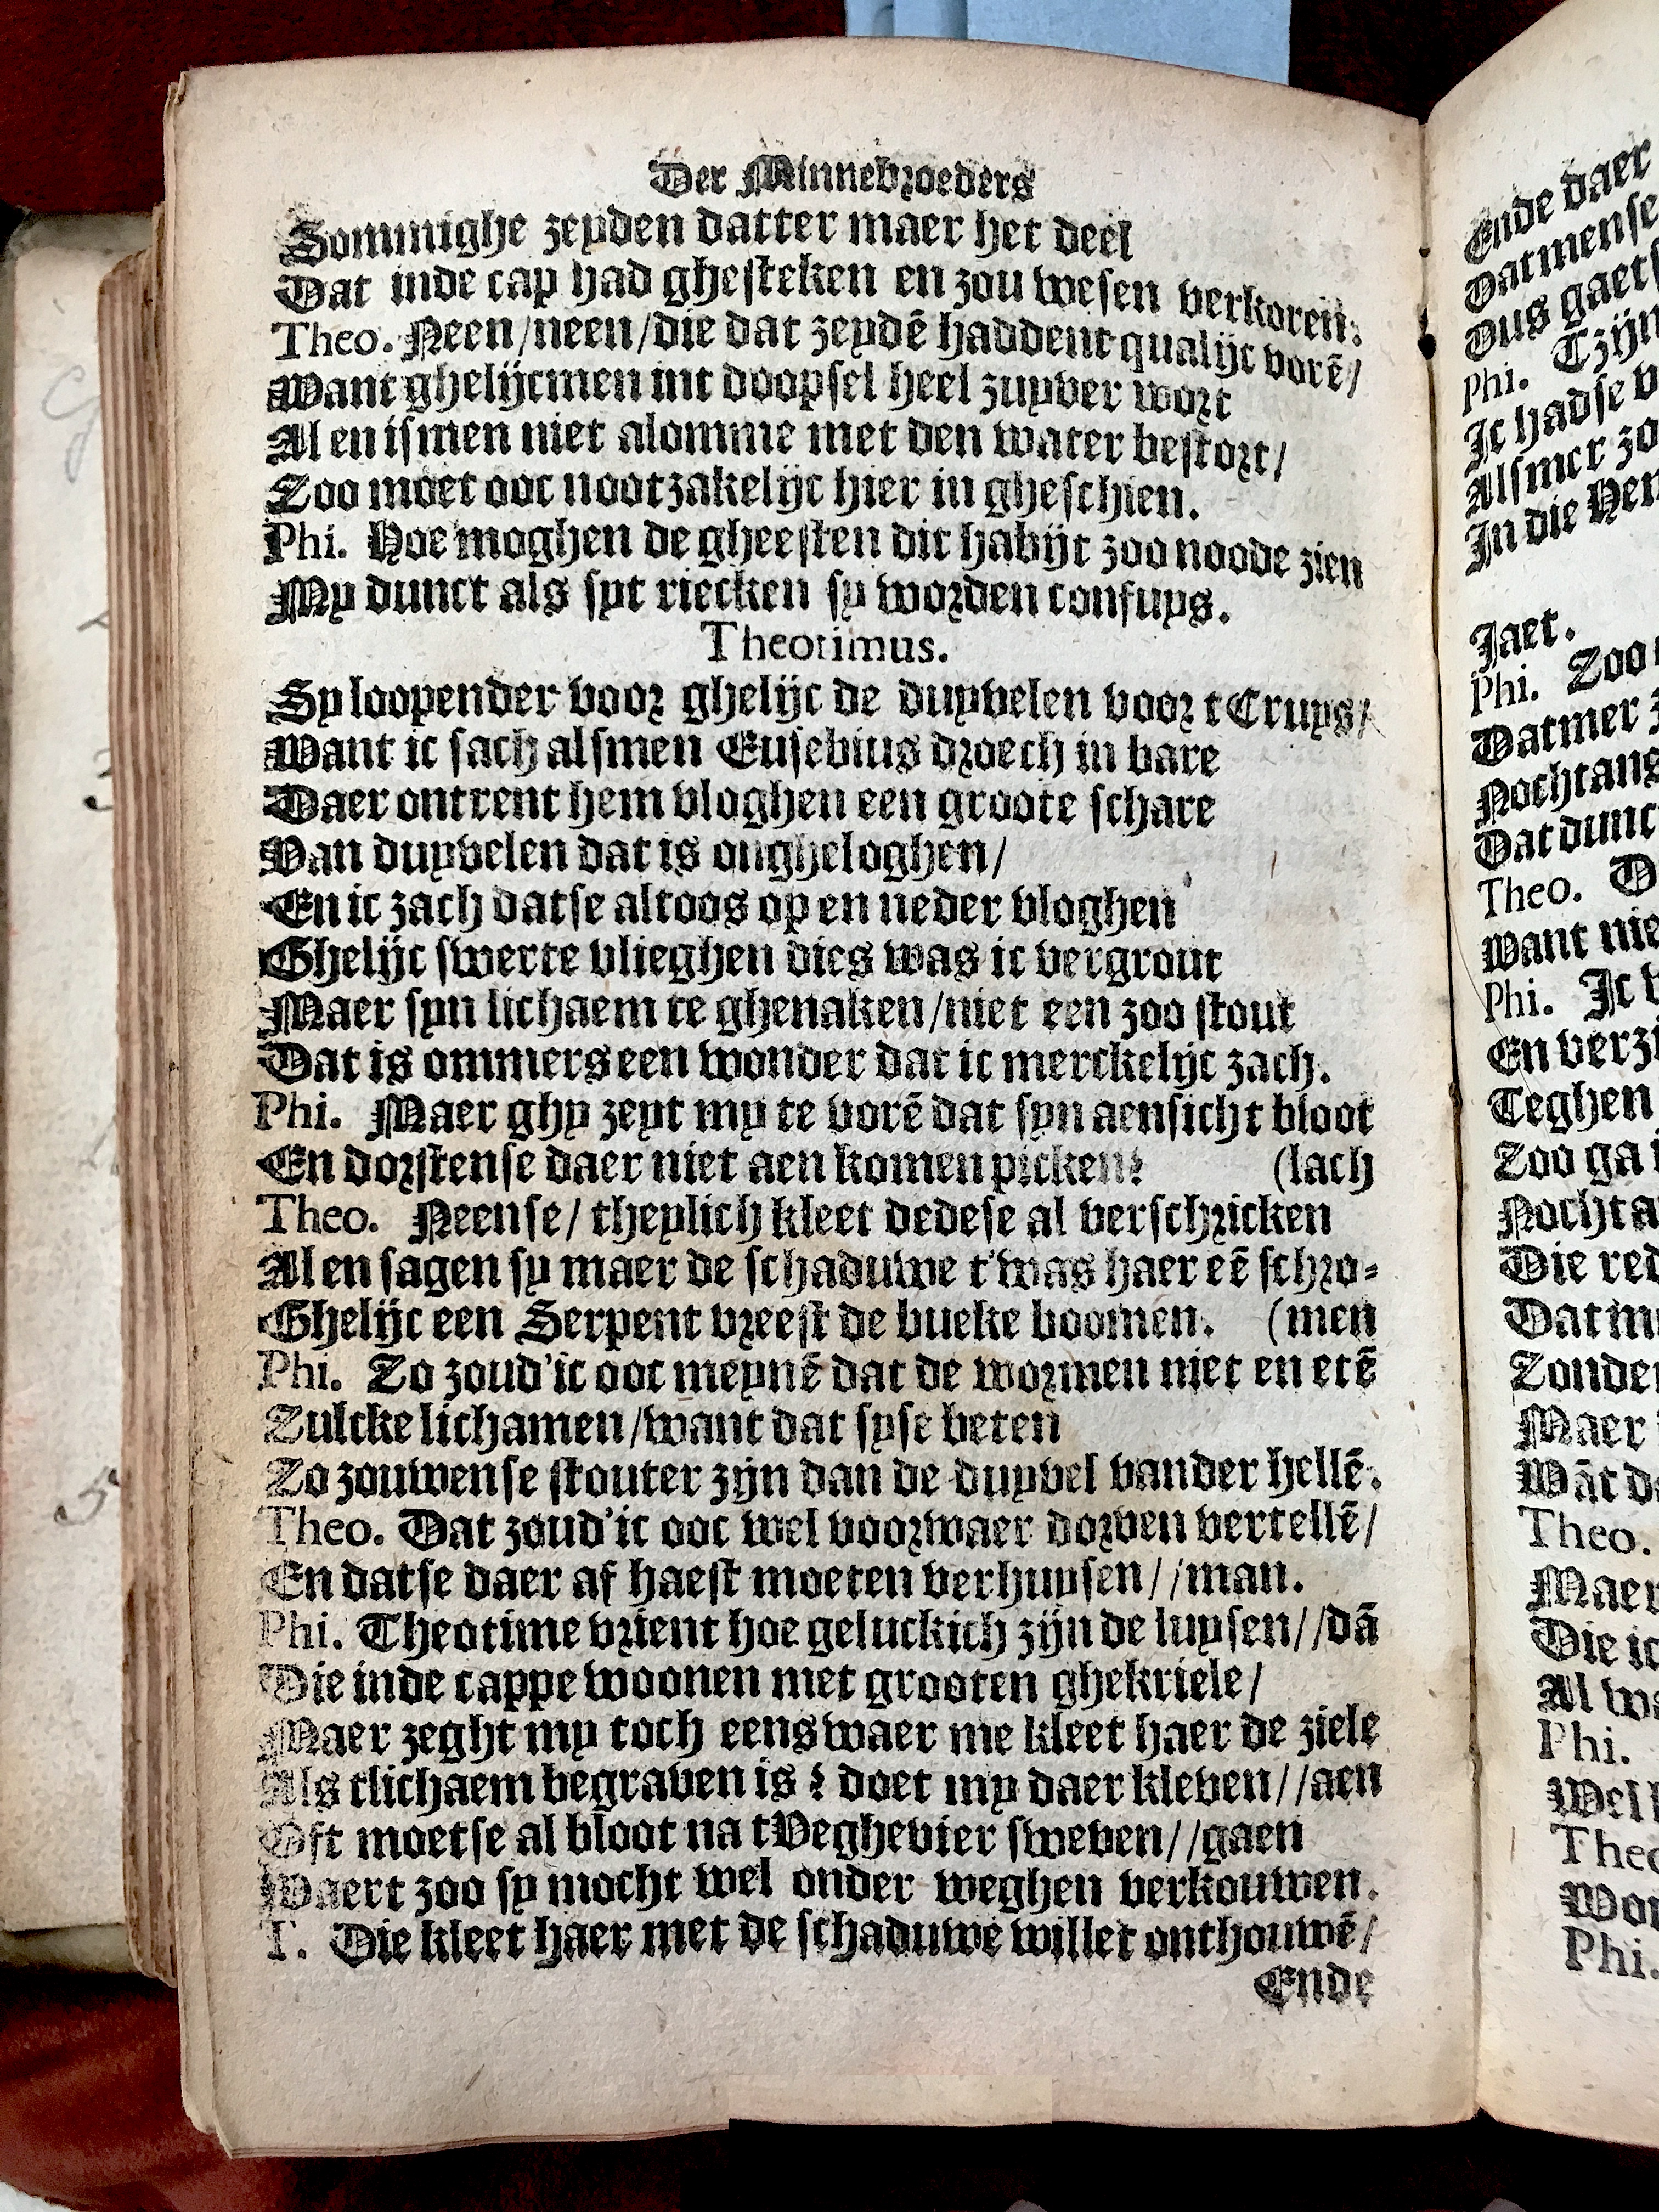 Der Minnebroeders
Sommighe zeyden datter maer het deel
Dat inde cap had ghesteken en zou wesen verkoren.
Theo. Neen/neen/die dat zeydē haddent qualijc vorē/
Want ghelijcmen int doopsel heel zuyver wort
Al en ismen niet alomme met den water bestort/
Zoo moet ooc nootzakelijc hier in gheschien.
Phi. Hoe moghen de gheesten dit habijt zoo noode zien
My dunct als syt riecken sy worden confuys.
Theotimus.
Sy loopender voor ghelijc de duyvelen voor tCruys/
Want ic sach alsmen Eusebius droech in bare
Daer ontrent hem vloghen een groote schare
Van duyvelen dat is ongheloghen/
En ic zach datse altoos op en neder vloghen
Ghelijc swerte vlieghen dies was ic vergrout
Maer syn lichaem te ghenaken/niet een zoo stout
Dat is ommers een wonder dat ic merckelijc zach.
Phi. Maer ghy zeyt my te vorē dat syn aensicht bloot
En dorstense daer niet aen komen picken? (lach
Theo. Neense/ theylich kleet dedese al verschricken
Al en sagen sy maer de schaduwe t'was haer eē schro-
Ghelijc een Serpent vreest de bueke boomen. (men
Phi. Zo zoud'ic ooc meynē dat de wormen niet en etē
Zulcke lichamen/want dat syse beten
Zo zouwense stouter zijn dan de duyvel vander hellē.
Theo. Dat zoud'ic ooc wel voorwaer dorven vertellē/
En datse daer af haest moeten verhuysen//man.
Phi. Theotime vrient hoe geluckich zijn de luysen//dā
Die inde cappe woonen met grooten ghekriele/
Maer zeght my toch eens waer me kleet haer de ziele
Als tlichaem begraven is? doet my daer kleven//aen
Oft moetse al bloot na tVeghevier sweven//gaen
Waert zoo sy mocht wel onder weghen verkouwen.
T. Die kleet haer met de schaduwe willet onthouwē/
Ende
Ende daer
Datmense
Dus gaets
Phi. Tzijn
Ic hadse
Alsmer zo
In die
Jaet.
Phi. Zoo
Datmer
Nochtans
Dat dunct
Theo.
Want nie
Phi. Ic
En verzi
Teghen
Zoo ga
Nochta
Die red
Dat m
Zonder
Maer
Wāt d
Theo.
Maer
Die ic
Al wa
Phi.
Wel
Theo
Wor
Phi.